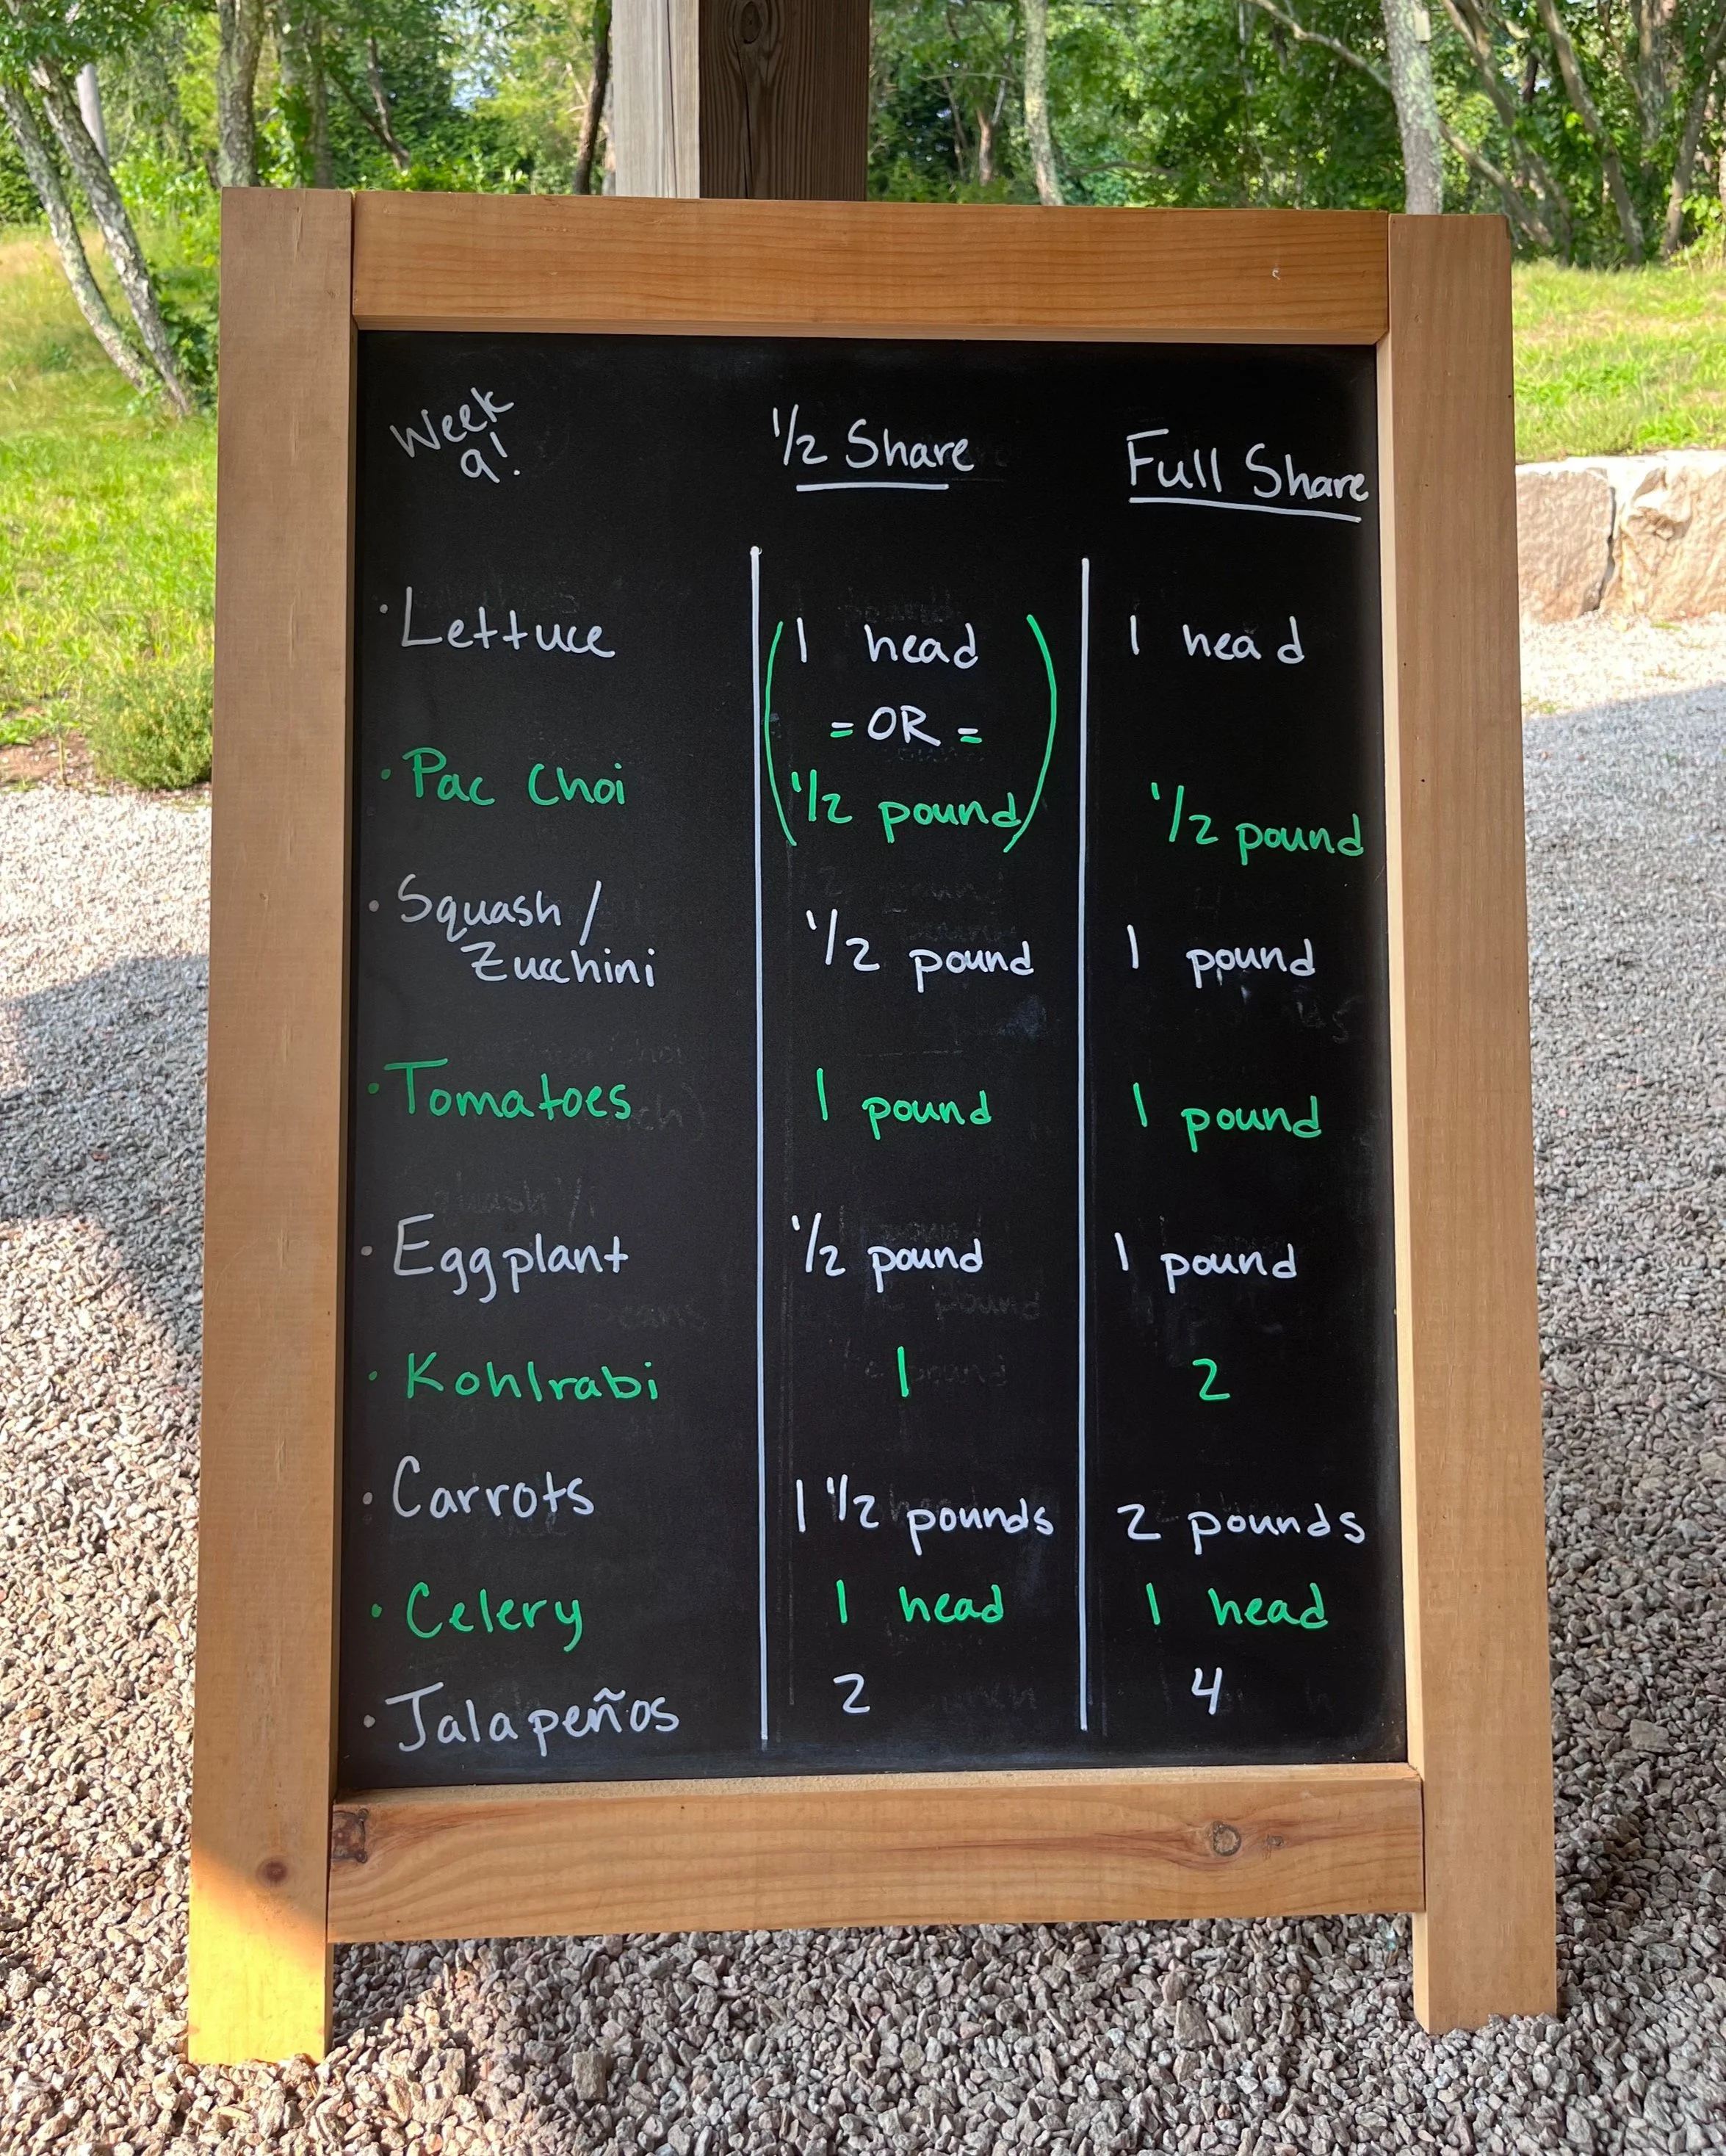 Week
9!
1/2 Share Full Share
· Lettuce 1 head 1 head
= OR =
· Pac Choi 1/2 pound 1/2 pound
· Squash /
Zucchini 1/2 pound 1 pound
· Tomatoes 1 pound 1 pound
· Eggplant 1/2 pound 1 pound
· Kohlrabi 1 2
· Carrots 1 1/2 pounds 2 pounds
· Celery 1 head 1 head
· Jalapeños 2 4